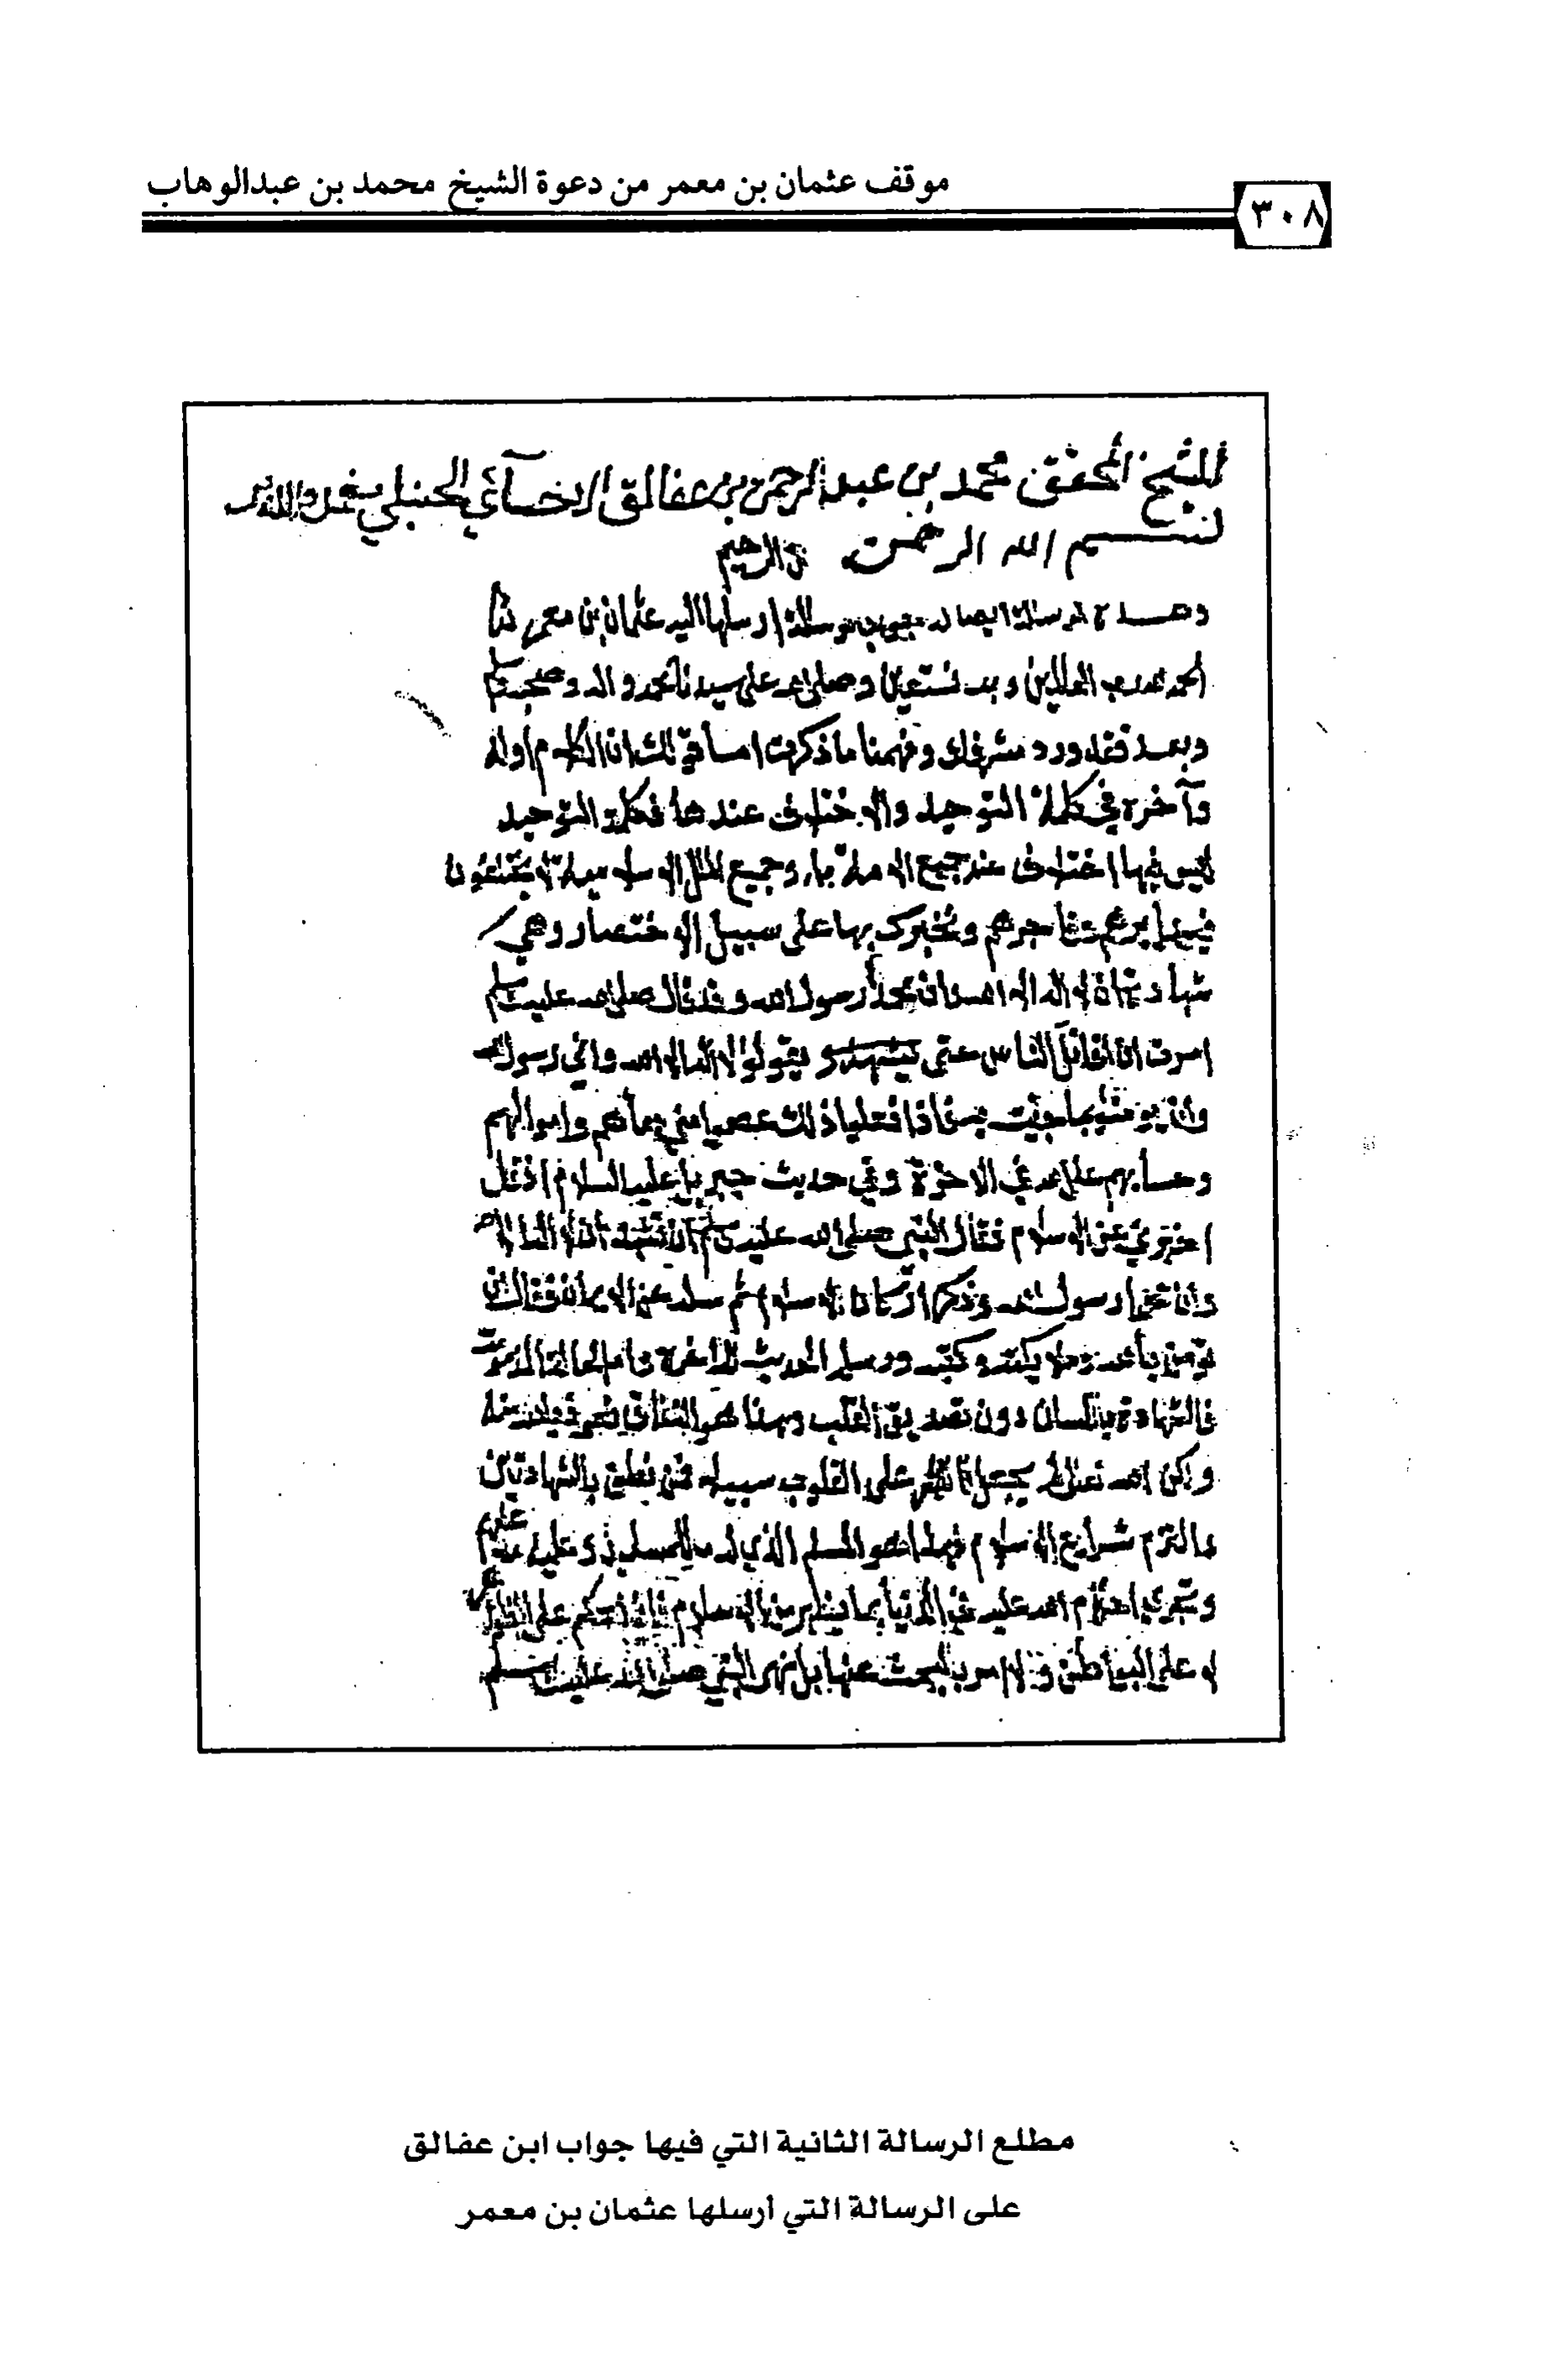 موقف عثمان بن معمر من دعوة الشيخ محمد بن عبدالوهاب
٣٠٨
للشيخ المحقق محمد بن عبد الرحمن بن عفالق الاحسآئي الحنبلي
بسم الله الرحمن الرحيم
وهذه الرسالة ايضا له جوابا رسالة ارسلها اليه عثمان بن معمر
الحمد لله رب العالمين وبه نستعين وصلى الله على سيدنا محمد واله وصحبه وسلم
وبعد فقد ورد مشرفك وفهمنا ما ذكرت اما قولك ان الكلام اوله
وآخره في كلمة التوحيد والاختلاف عندها فكلمة التوحيد
ليس فيها اختلاف عند جميع الامة بل وجميع الملل الاسلامية لا يختلفون
فيها برهم وفاجرهم ونخبرك بها على سبيل الاختصار وهي
شهادة ان لا اله الا الله وان محمدا رسول الله وقد قال صلى الله عليه وسلم
امرت ان اقاتل الناس حتى يقولوا لا اله الا الله واني رسول الله
وان يؤمنوا بما جئت به فاذا فعلوا ذلك عصموا مني دمآئهم واموالهم
وحسابهم على الله في الاخرة وفي حديث جبريل عليه السلام اذ قال
اخبرني عن الاسلام فقال النبي صلى الله عليه وسلم ان تشهد ان لا اله الا الله
وان محمدا رسول الله وذكر اركان الاسلام ثم سأله عن الايمان فقال ان
تؤمن بالله وملائكته وكتبه ورسله الحديث الى اخره
فالشهادة باللسان دون تصديق القلب وهذا هو النفاق
ولكن الله تعالى لم يجعل لنا على القلوب سبيلا فمن نطق بالشهادتين
والتزم شرائع الاسلام فهذا هو المسلم الذي له ما للمسلمين وعليه ما عليهم
وتجري احكام الله عليه في الدنيا بما يظهر من الاسلام
لا على البواطن ولا امر بالبحث عنها بل نهى النبي صلى الله عليه وسلم
مطلع الرسالة الثانية التي فيها جواب ابن عفالق
على الرسالة التي أرسلها عثمان بن معمر